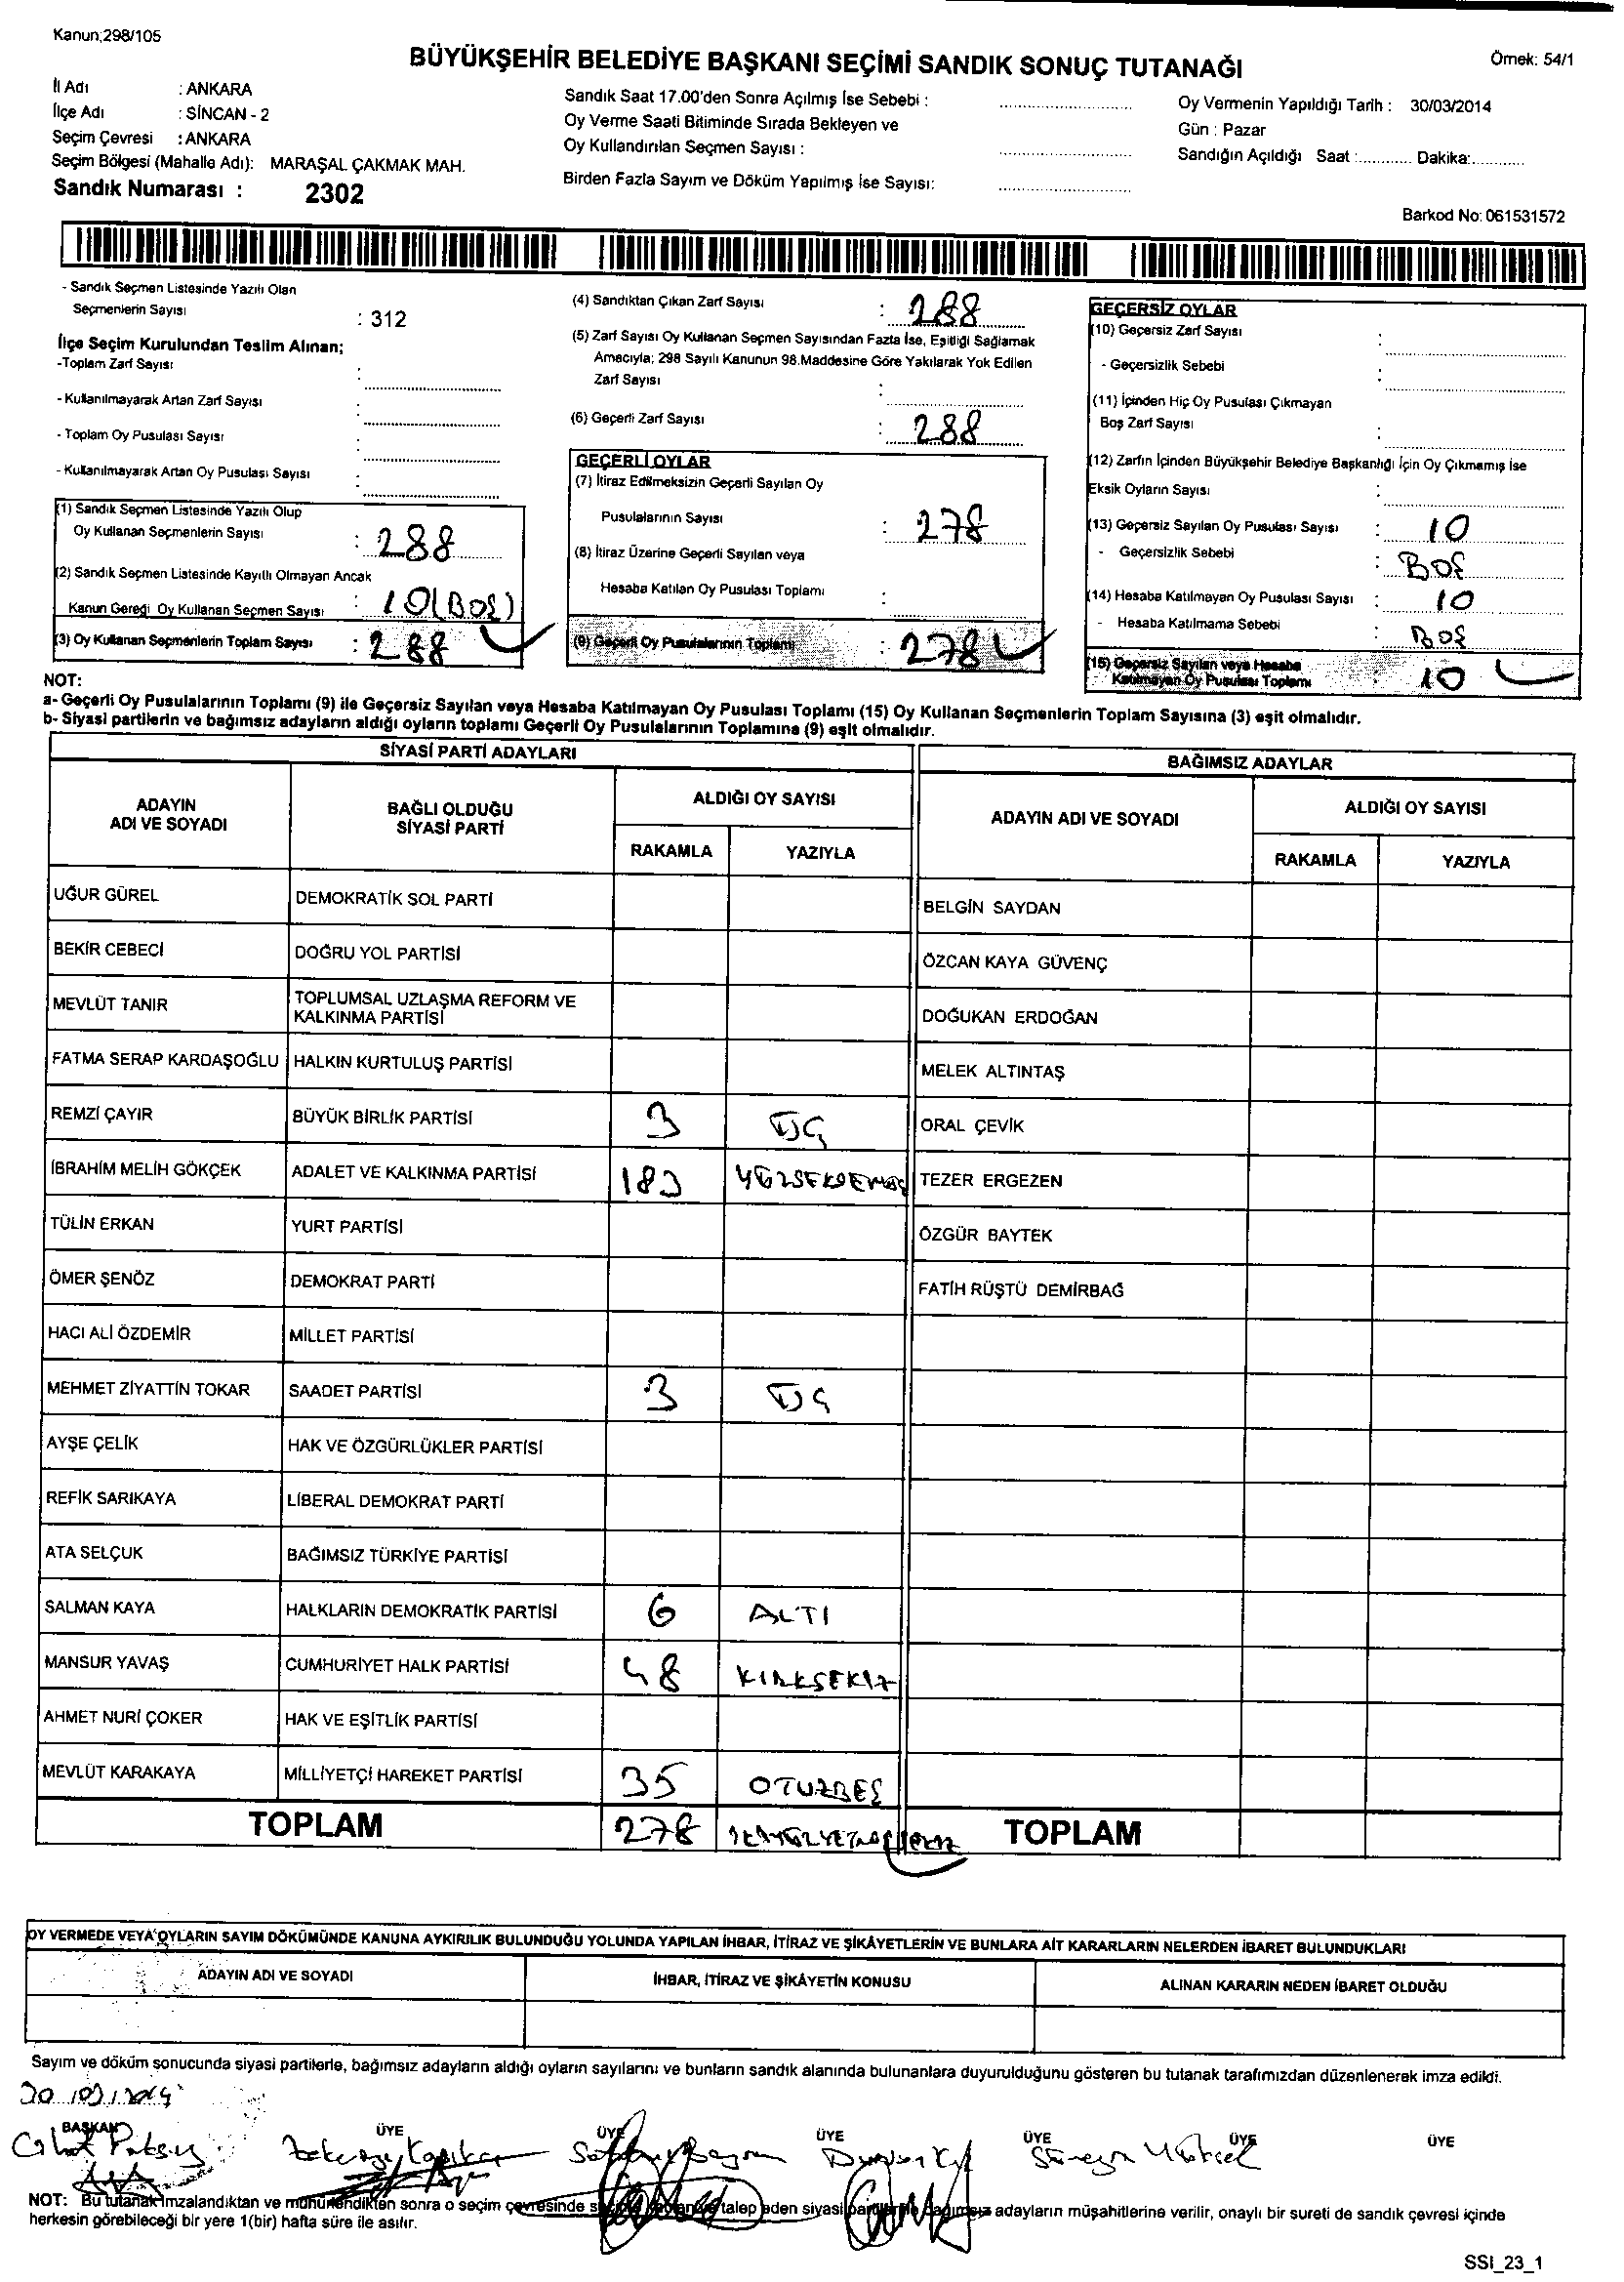 Kanun;298/105
BÜYÜKŞEHİR BELEDİYE BAŞKANI SEÇİMİ SANDIK SONUÇ TUTANAĞI
Örnek: 54/1
İl Adı : ANKARA
İlçe Adı : SİNCAN - 2
Seçim Çevresi : ANKARA
Seçim Bölgesi (Mahalle Adı): MARAŞAL ÇAKMAK MAH.
Sandık Numarası : 2302
Sandık Saat 17.00'den Sonra Açılmış İse Sebebi :
Oy Verme Saati Bitiminde Sırada Bekleyen ve
Oy Kullandırılan Seçmen Sayısı :
Birden Fazla Sayım ve Döküm Yapılmış İse Sayısı:
Oy Vermenin Yapıldığı Tarih : 30/03/2014
Gün : Pazar
Sandığın Açıldığı Saat :............ Dakika:............
Barkod No: 061531572
- Sandık Seçmen Listesinde Yazılı Olan
Seçmenlerin Sayısı : 312
İlçe Seçim Kurulundan Teslim Alınan;
-Toplam Zarf Sayısı :
- Kullanılmayarak Artan Zarf Sayısı :
- Toplam Oy Pusulası Sayısı :
- Kullanılmayarak Artan Oy Pusulası Sayısı :
(1) Sandık Seçmen Listesinde Yazılı Olup
Oy Kullanan Seçmenlerin Sayısı : 288
(2) Sandık Seçmen Listesinde Kayıtlı Olmayan Ancak
Kanun Gereği Oy Kullanan Seçmen Sayısı : 10(BOŞ)
(3) Oy Kullanan Seçmenlerin Toplam Sayısı : 288
(4) Sandıktan Çıkan Zarf Sayısı : 288
(5) Zarf Sayısı Oy Kullanan Seçmen Sayısından Fazla İse, Eşitliği Sağlamak
Amacıyla; 298 Sayılı Kanunun 98.Maddesine Göre Yakılarak Yok Edilen
Zarf Sayısı :
(6) Geçerli Zarf Sayısı : 288
GEÇERLİ OYLAR
(7) İtiraz Edilmeksizin Geçerli Sayılan Oy
Pusulalarının Sayısı : 278
(8) İtiraz Üzerine Geçerli Sayılan veya
Hesaba Katılan Oy Pusulası Toplamı :
(9) Geçerli Oy Pusulalarının Toplamı : 278
GEÇERSİZ OYLAR
(10) Geçersiz Zarf Sayısı :
- Geçersizlik Sebebi :
(11) İçinden Hiç Oy Pusulası Çıkmayan
Boş Zarf Sayısı :
(12) Zarfın İçinden Büyükşehir Belediye Başkanlığı İçin Oy Çıkmamış İse
Eksik Oyların Sayısı :
(13) Geçersiz Sayılan Oy Pusulası Sayısı : 10
- Geçersizlik Sebebi : BOŞ
(14) Hesaba Katılmayan Oy Pusulası Sayısı : 10
- Hesaba Katılmama Sebebi : BOŞ
(15) Geçersiz Sayılan veya Hesaba
Katılmayan Oy Pusulası Toplamı : 10
NOT:
a- Geçerli Oy Pusulalarının Toplamı (9) ile Geçersiz Sayılan veya Hesaba Katılmayan Oy Pusulası Toplamı (15) Oy Kullanan Seçmenlerin Toplam Sayısına (3) eşit olmalıdır.
b- Siyasi partilerin ve bağımsız adayların aldığı oyların toplamı Geçerli Oy Pusulalarının Toplamına (9) eşit olmalıdır.
SİYASİ PARTİ ADAYLARI
ADAYIN ADI VE SOYADI
BAĞLI OLDUĞU SİYASİ PARTİ
ALDIĞI OY SAYISI
RAKAMLA YAZIYLA
UĞUR GÜREL DEMOKRATİK SOL PARTİ
BEKİR CEBECİ DOĞRU YOL PARTİSİ
MEVLÜT TANIR TOPLUMSAL UZLAŞMA REFORM VE
KALKINMA PARTİSİ
FATMA SERAP KARDAŞOĞLU HALKIN KURTULUŞ PARTİSİ
REMZİ ÇAYIR BÜYÜK BİRLİK PARTİSİ 3 ÜÇ
İBRAHİM MELİH GÖKÇEK ADALET VE KALKINMA PARTİSİ 183 YÜZSEKSENÜÇ
TÜLİN ERKAN YURT PARTİSİ
ÖMER ŞENÖZ DEMOKRAT PARTİ
HACI ALİ ÖZDEMİR MİLLET PARTİSİ
MEHMET ZİYATTİN TOKAR SAADET PARTİSİ 3 ÜÇ
AYŞE ÇELİK HAK VE ÖZGÜRLÜKLER PARTİSİ
REFİK SARIKAYA LİBERAL DEMOKRAT PARTİ
ATA SELÇUK BAĞIMSIZ TÜRKİYE PARTİSİ
SALMAN KAYA HALKLARIN DEMOKRATİK PARTİSİ 6 ALTI
MANSUR YAVAŞ CUMHURİYET HALK PARTİSİ 48 KIRKSEKİZ
AHMET NURİ ÇOKER HAK VE EŞİTLİK PARTİSİ
MEVLÜT KARAKAYA MİLLİYETÇİ HAREKET PARTİSİ 35 OTUZBEŞ
TOPLAM 278 İKİYÜZYETMİŞSEKİZ
BAĞIMSIZ ADAYLAR
ADAYIN ADI VE SOYADI
ALDIĞI OY SAYISI
RAKAMLA YAZIYLA
BELGİN SAYDAN
ÖZCAN KAYA GÜVENÇ
DOĞUKAN ERDOĞAN
MELEK ALTINTAŞ
ORAL ÇEVİK
TEZER ERGEZEN
ÖZGÜR BAYTEK
FATİH RÜŞTÜ DEMİRBAĞ
TOPLAM
OY VERMEDE VEYA OYLARIN SAYIM DÖKÜMÜNDE KANUNA AYKIRILIK BULUNDUĞU YOLUNDA YAPILAN İHBAR, İTİRAZ VE ŞİKÂYETLERİN VE BUNLARA AİT KARARLARIN NELERDEN İBARET BULUNDUKLARI
ADAYIN ADI VE SOYADI
İHBAR, İTİRAZ VE ŞİKÂYETİN KONUSU
ALINAN KARARIN NEDEN İBARET OLDUĞU
Sayım ve döküm sonucunda siyasi partilerle, bağımsız adayların aldığı oyların sayılarını ve bunların sandık alanında bulunanlara duyurulduğunu gösteren bu tutanak tarafımızdan düzenlenerek imza edildi.
30/03/2014
BAŞKAN ÜYE ÜYE ÜYE ÜYE ÜYE ÜYE
NOT: Bu tutanak imzalandıktan ve mühürlendikten sonra o seçim çevresinde talep eden siyasi bağımsız adayların müşahitlerine verilir, onaylı bir sureti de sandık çevresi içinde
herkesin görebileceği bir yere 1(bir) hafta süre ile asılır.
SSI_23_1